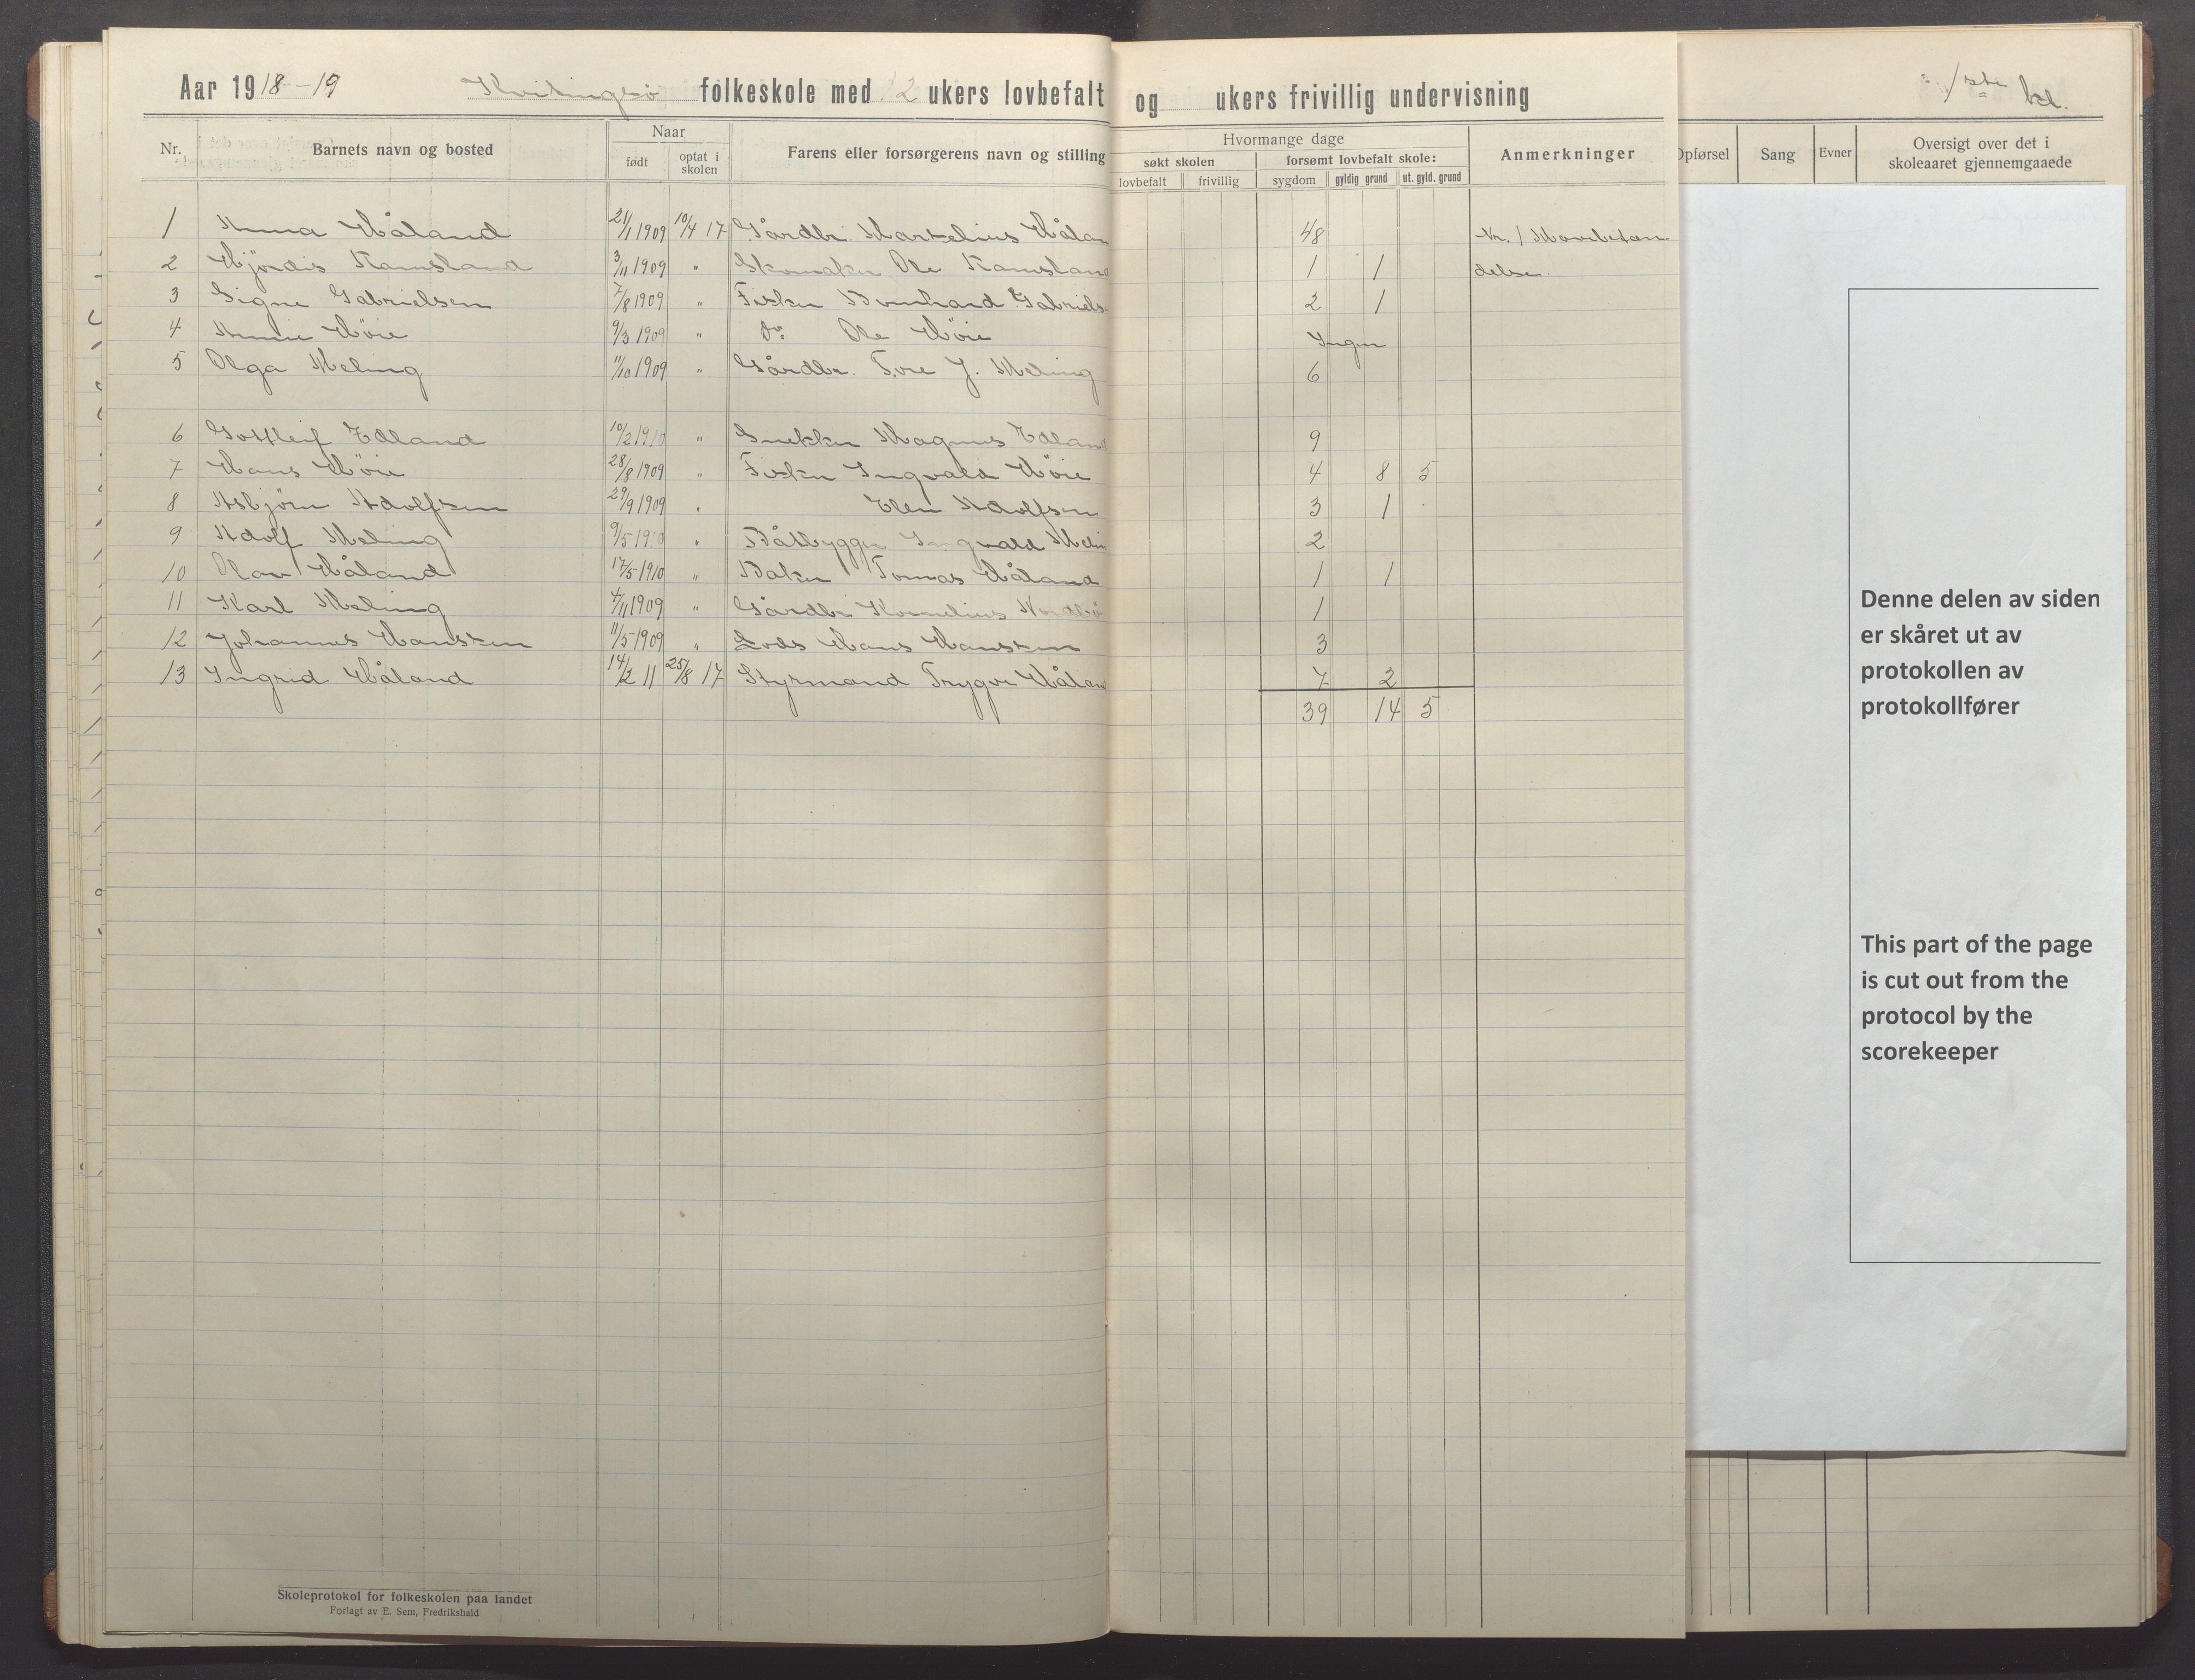 Aar 1918-19 Kvitingsö folkeskole med 12 ukers lovbefalt og ukers frivillig undervisning 1ste kl.
Nr. Barnets navn og bosted Naar født optat i skolen Farens eller forsørgerens navn og stilling Hvormange dage søkt skolen lovbefalt frivillig forsømt lovbefalt skole: sygdom gyldig grund ut. gyld. grund Anmerkninger Opførsel Sang Evner Oversigt over det i skoleaaret gjennemgaaede
1 Anna Håland 21/1 1909 10/4 17 Gårdbr. Martelius Håland 48 Nr. 1
2 Hjördis Ramsland 3/11 1909 " Skomaker Ole Ramsland 1 1 delse.
3 Signe Gabrielsen 7/8 1909 " Fisker Bernhard Gabriels. 2 1
4 Annie Höie 9/3 1909 " Do Ole Höie Ingen
5 Olga Meling 11/10 1909 " Gårdbr. Tore J. Meling 6
6 Gottleif Edland 10/2 1910 " Snekker Magnus Edland 9
7 Hans Höie 28/8 1909 " Fisker Ingvald Höie 4 8 5
8 Asbjörn Adolfsen 29/9 1909 " Elen Adolfsen 3 1
9 Adolf Meling 9/5 1910 " Båtbygger Ingvald Melin 2
10 Olav Håland 17/5 1910 " Baker Tomas Håland 1 1
11 Karl Meling 4/11 1909 " Gårdbr Kornelius Nordbö 1
12 Johannes Hansen 11/5 1909 " Lods Hans Hansen 3
13 Ingrid Håland 14/2 11 25/8 17 Styrmand Trygve Håland 7 2
39 14 5
Denne delen av siden
er skåret ut av
protokollen av
protokollfører
This part of the page
is cut out from the
protocol by the
scorekeeper
Skoleprotokol for folkeskolen paa landet
Forlagt av E. Sem, Fredrikshald